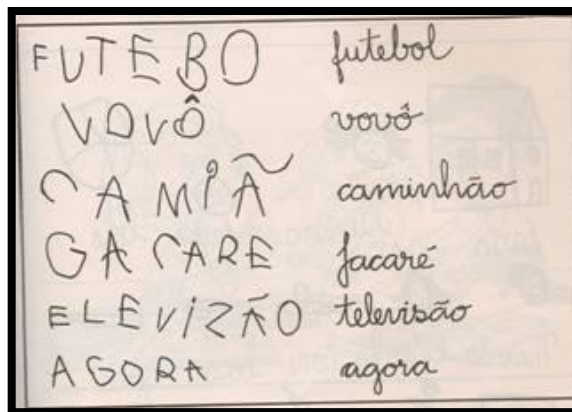 FUTEBO futebol
VOVÔ vovô
CAMIÃ caminhão
GACARE jacaré
ELEVIZÃO televisão
AGORA agora